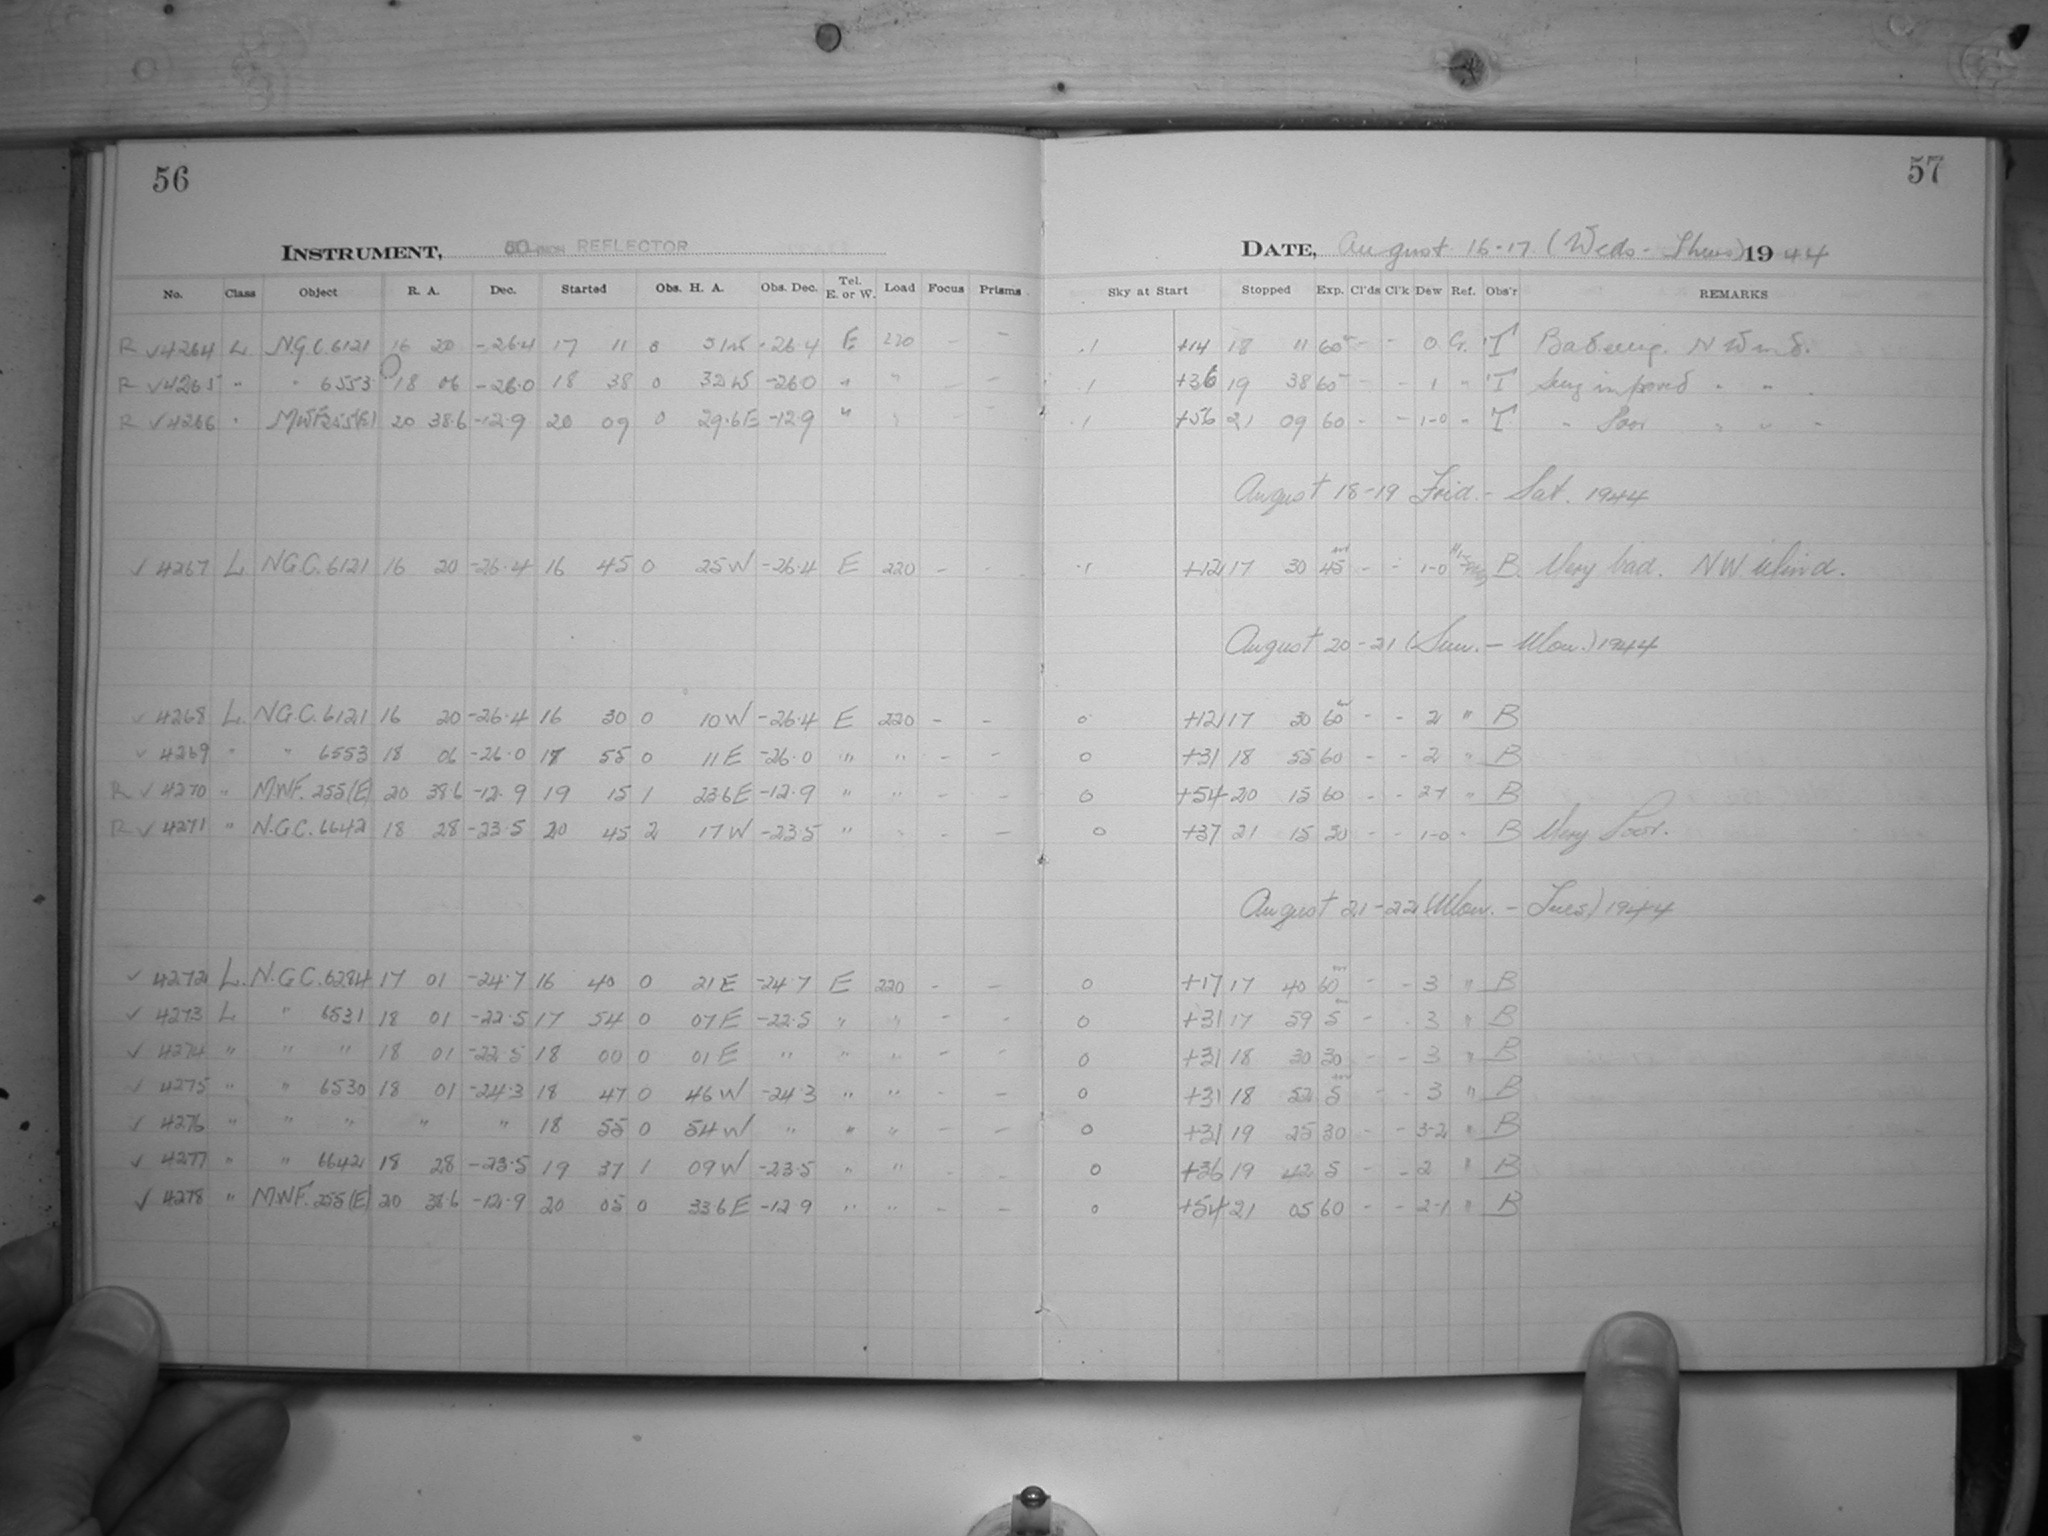 56
57
INSTRUMENT, 60 INCH REFLECTOR
DATE, August 16-17 (Weds - Thurs) 1944
No. Class Object R. A. Dec. Started Obs. H. A. Obs. Dec. Tel. E. or W. Load Focus Prisms Sky at Start Stopped Exp. Cl'ds Cl'k Dew Ref. Obs'r REMARKS
R √ 4264 L N.G.C. 6121 16 20 -26.4 17 11 0 51W -26.4 E 220 - - .1 +14 18 11 60 - - 0 G. T Bad seeing. N Wind.
R √ 4265 " " 6553 18 06 -26.0 18 38 0 32W -26.0 " " - - .1 +36 19 38 60 - - 1 " T Seeing improved " "
R √ 4266 " MWF 255(E) 20 38.6 -12.9 20 09 0 29.6E -12.9 " " .1 +56 21 09 60 - - 1-0 " T " Poor " " "
August 18-19 Frid. - Sat. 1944
√ 4267 L NGC. 6121 16 20 -26.4 16 45 0 25W -26.4 E 220 - - .1 +12 17 30 45 - - 1-0 B. Very bad. NW Wind.
August 20-21 (Sun. - Mon.) 1944
√ 4268 L. NGC. 6121 16 20 -26.4 16 30 0 10W -26.4 E 220 - - 0 +12 17 30 60 - - 2 " B
√ 4269 " " 6553 18 06 -26.0 17 55 0 11E -26.0 " " - - 0 +31 18 55 60 - - 2 " B
R √ 4270 " MWF. 255(E) 20 38.6 -12.9 19 15 1 23.6E -12.9 " " - - 0 +54 20 15 60 - - 2-1 " B
R √ 4271 " N.G.C. 6642 18 28 -23.5 20 45 2 17W -23.5 " " - - 0 +37 21 15 30 - - 1-0 " B Very Poor.
August 21-22 (Mon. - Tues) 1944
√ 4272 L. N.G.C. 6284 17 01 -24.7 16 40 0 21E -24.7 E 220 - - 0 +17 17 40 60 - - 3 " B
√ 4273 L " 6531 18 01 -22.5 17 54 0 07E -22.5 " " - - 0 +31 17 59 5 - - 3 " B
√ 4274 " " " 18 01 -22.5 18 00 0 01E " " " - - 0 +31 18 30 30 - - 3 " B
√ 4275 " " 6530 18 01 -24.3 18 47 0 46W -24.3 " " - - 0 +31 18 52 5 - - 3 " B
√ 4276 " " " " " 18 55 0 54W " " " - - 0 +31 19 25 30 - - 3-2 " B
√ 4277 " " 6642 18 28 -23.5 19 37 1 09W -23.5 " " - - 0 +36 19 42 5 - - 2 " B
√ 4278 " MWF. 255(E) 20 38.6 -12.9 20 05 0 33.6E -12.9 " " - - 0 +54 21 05 60 - - 2-1 " B